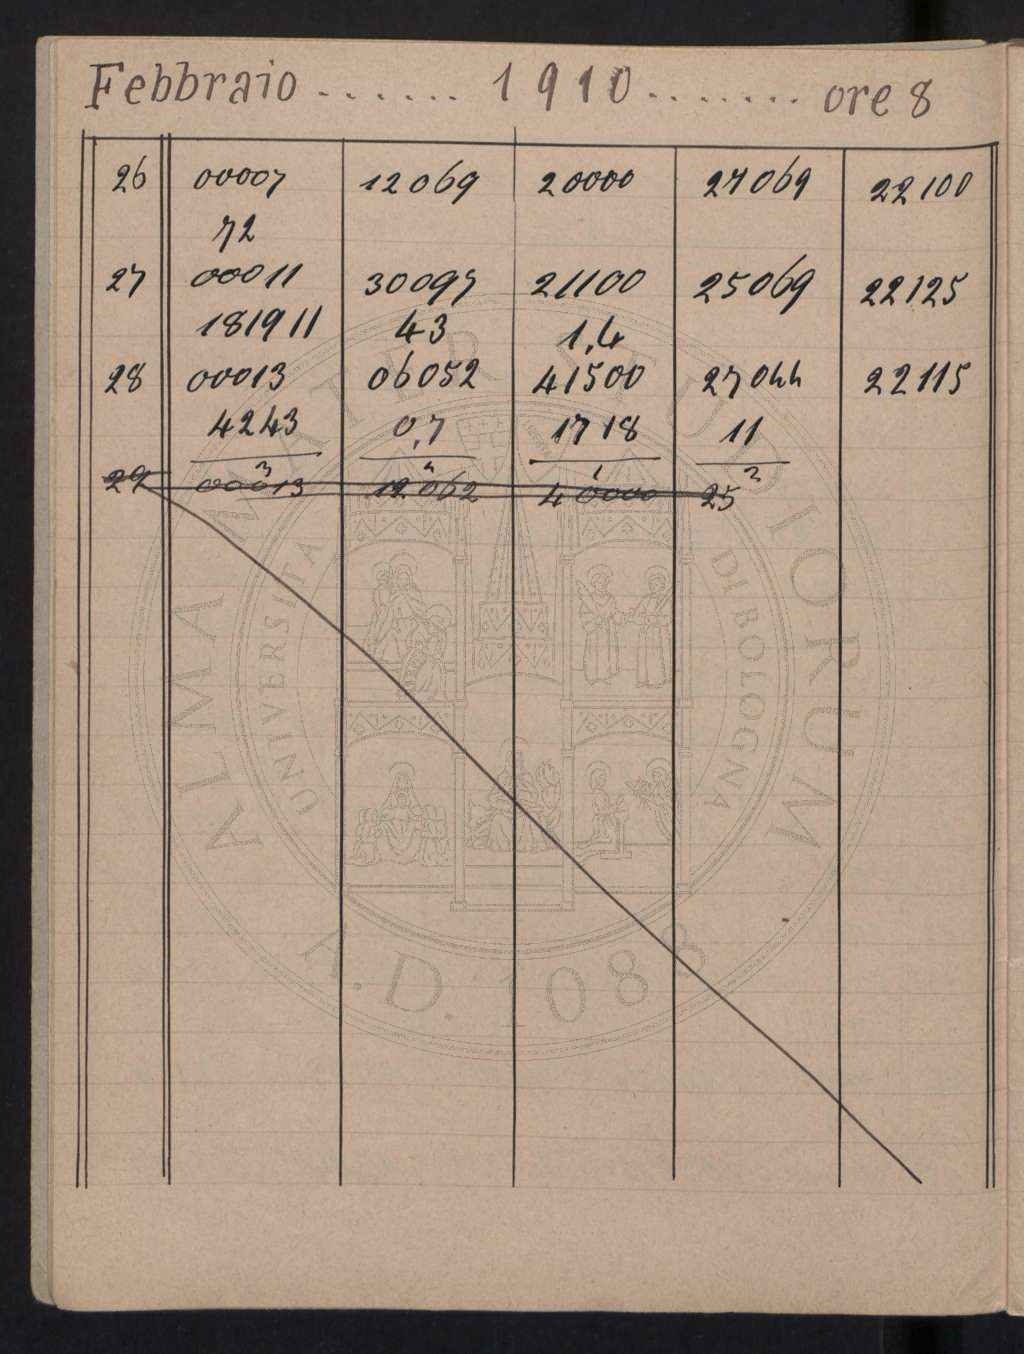 Febbraio ....... 1910 ........ ore 8
26 00007 12069 20000 27069 22100
72
27 00011 30097 21100 25069 22125
181911 43 1,4
28 00013 06052 41500 27044 22115
4243 0,7 1718 11
3 4 1 2
29 00013 12062 40000 25
ALMA MATER STUDIORUM
UNIVERSITA DI BOLOGNA
A.D. 1088